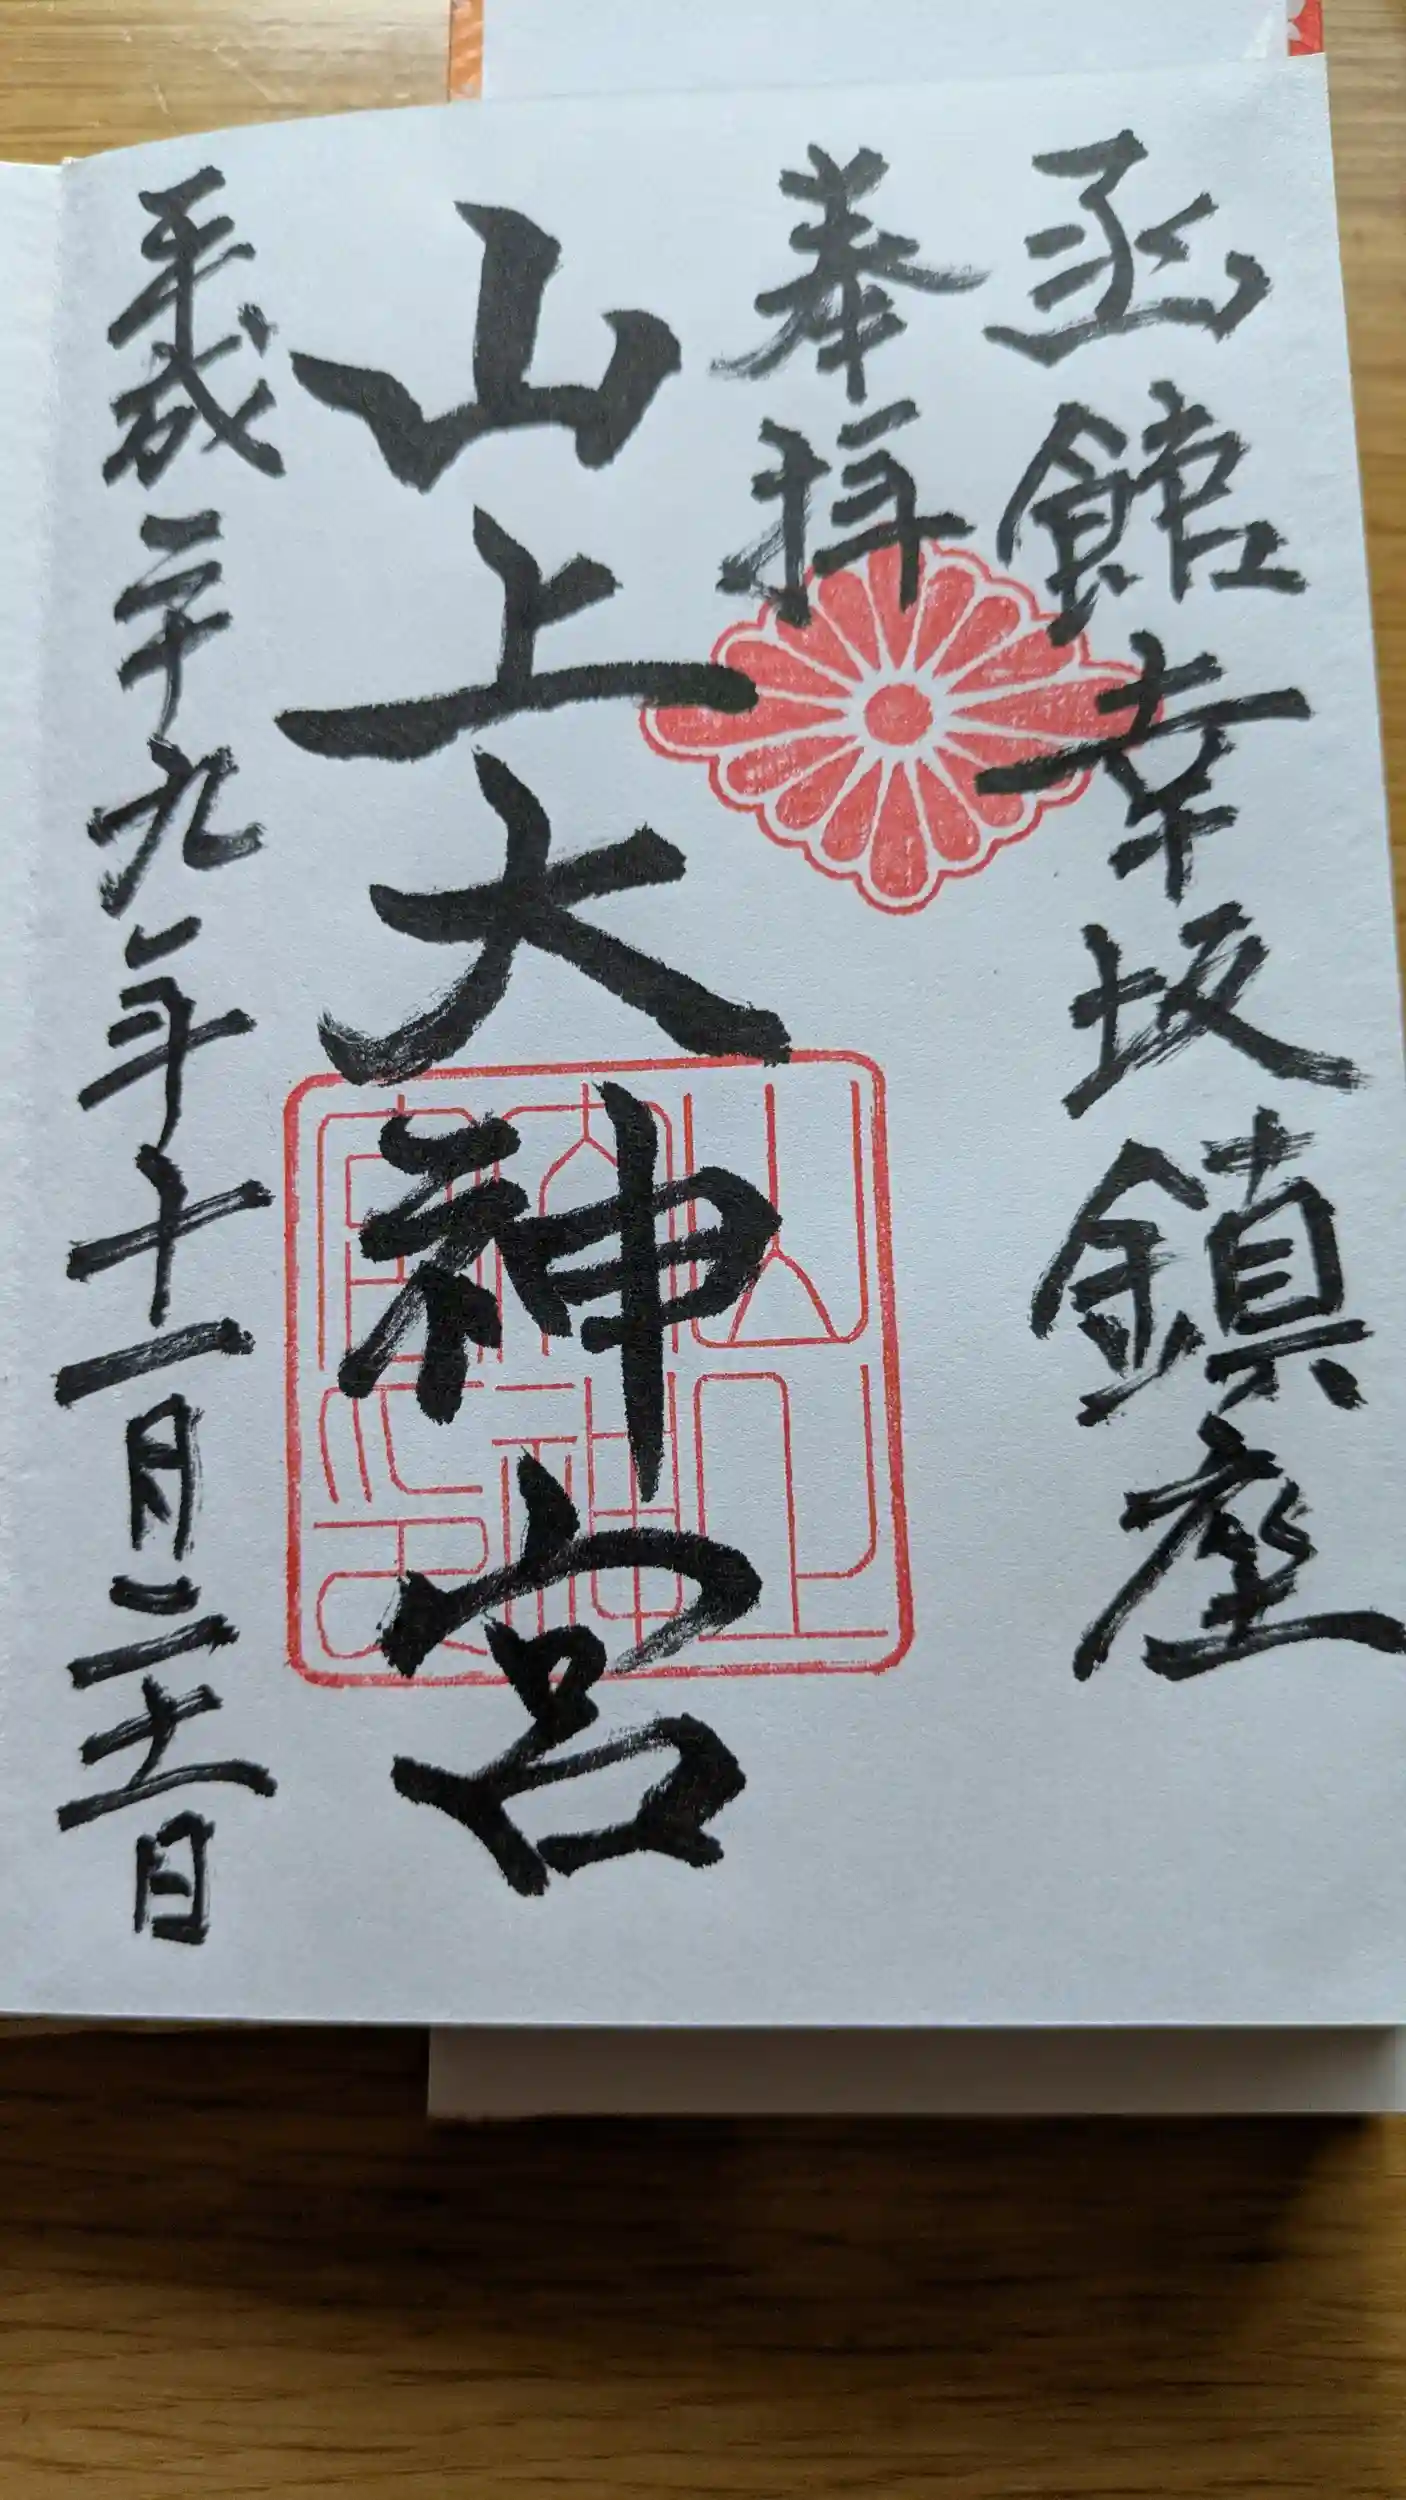 函館幸坂鎮座
奉拝
山上大神宮
平成二十九年十一月二十一日